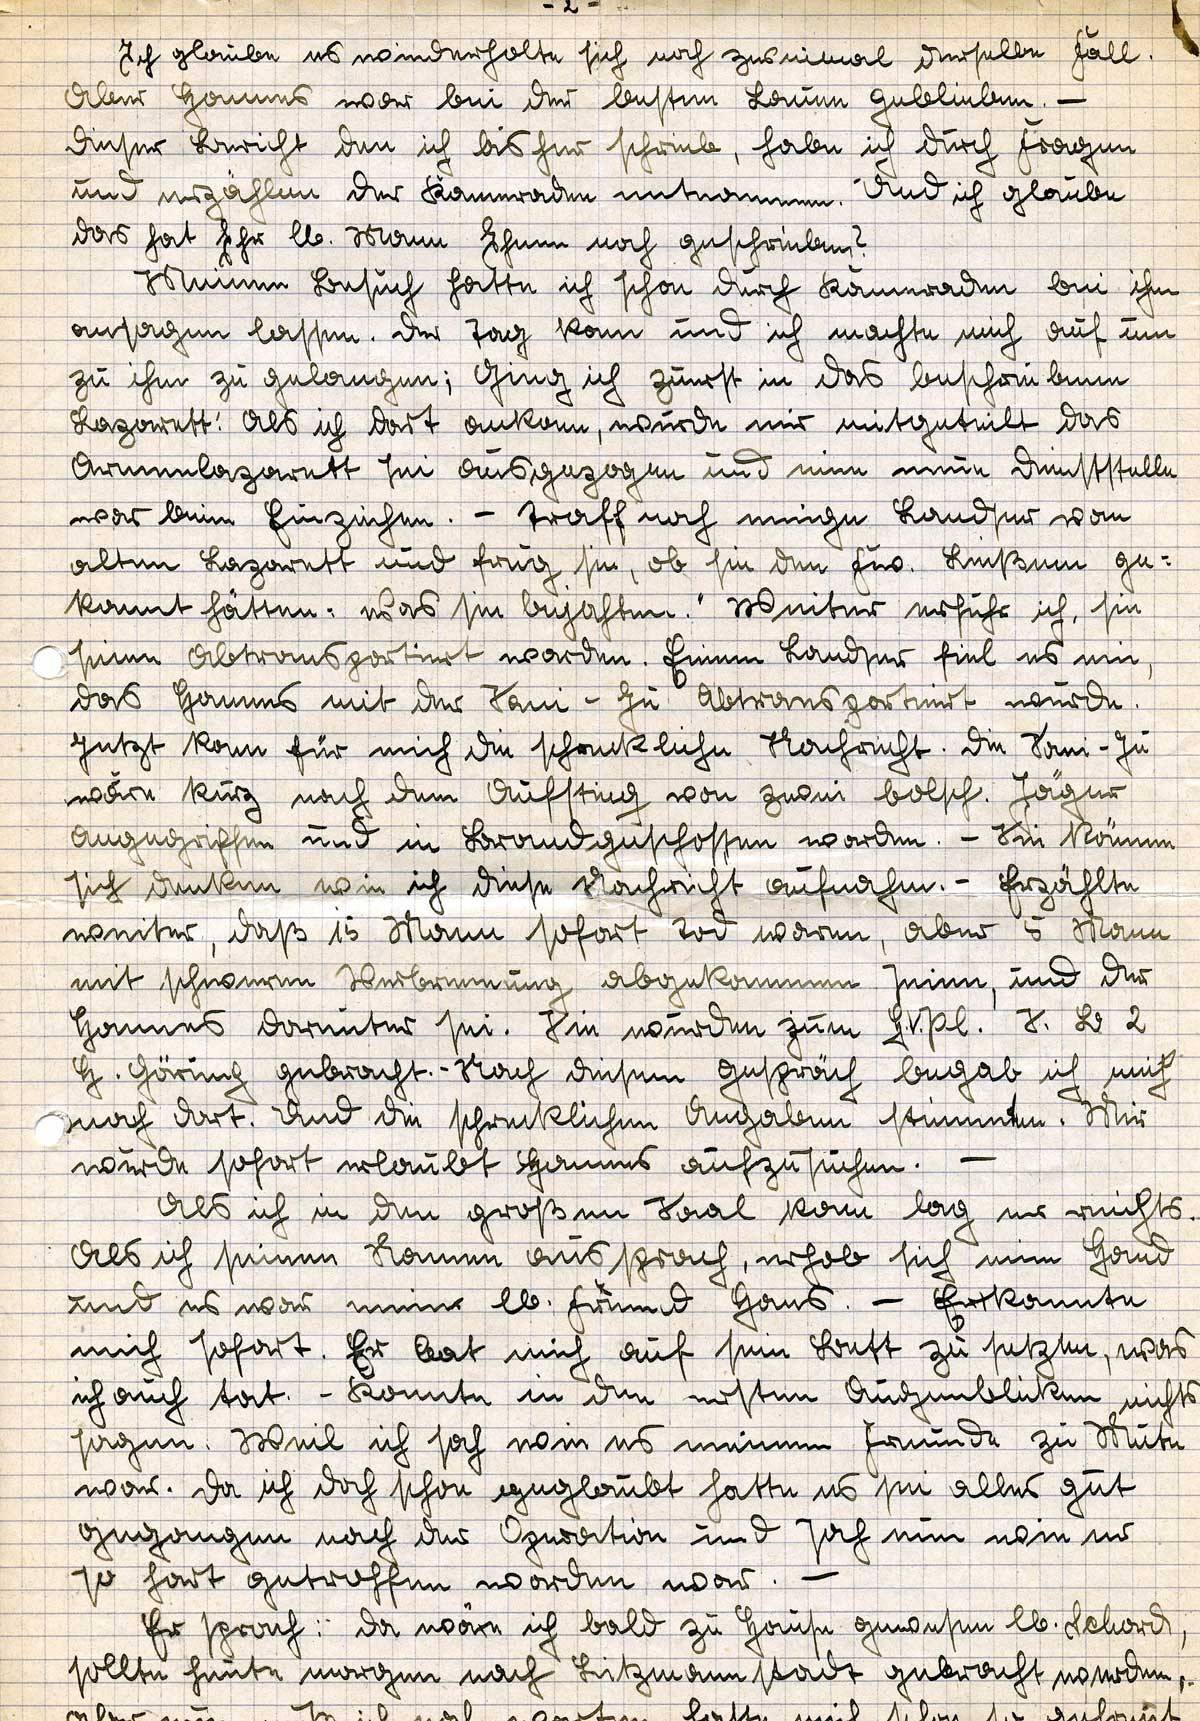 - 2 -
Ich glaube es wiederholte sich noch zweimal derselbe Fall.
Aber Hannes war bei der besten Laune geblieben. —
Dieser Bericht den ich bisher schrieb, habe ich durch Fragen
und erzählen der Kameraden entnommen. Und ich glaube
das hat Ihr lb. Mann Ihnen noch geschrieben?
Meinen Besuch hatte ich schon durch Kameraden bei ihm
ansagen lassen. Der Tag kam und ich machte mich auf um
zu ihm zu gelangen; Ging ich zuerst in das beschriebene
Lazarett! Als ich dort ankam, wurde mir mitgeteilt das
Armeelazarett sei ausgezogen und eine neue Dienststelle
war beim Einziehen. - Traff noch einige Landser vom
alten Lazarett und frug sie, ob sie den Fw. ge-
kannt hätten: was sie bejahten." Weiter erfuhr ich, sie
seien Abtransportiert worden. Einem Landser fiel es ein,
das Hannes mit der Sani - Ju Abtransportiert wurde.
Jetzt kam für mich die schreckliche Nachricht. Die Sani - Ju
wäre kurz nach dem Aufstieg von zwei bolsch. Jäger
Angegriffen und in Brandgeschossen worden. - Sie können
sich denken wie ich diese Nachricht aufnahm. - Erzählte
weiter, daß 15 Mann sofort Tod waren, aber 5 Mann
mit schweren Verbrennung abgekommen seien, und der
Hannes darunter sei. Sie wurden zum H.V.Pl. S. 2
H. Göring gebracht. - Nach diesem Gespräch begab ich mich
nach dort. Und die schrecklichen Angaben stimmten. Mir
wurde sofort erlaubt Hannes aufzusuchen. —
Als ich in den großen Saal kam lag er rechts.
Als ich seinen Namen aussprach, erhob sich eine Hand
und es war mein lb. Freund Hans. — Erkannte
mich sofort. Er bat mich auf sein Bett zu setzten, was
ich auch tat. - Konnte in den ersten Augenblicken nichts
sagen. Weil ich sah wie es meinem Freunde zu Mute
war. Da ich doch schon geglaubt hatte es sei alles gut
gegangen nach der Operation und sah nun wie er
so hart getroffen worden war. —
Er sprach: da wäre ich bald zu Hause gewesen lb.
sollte heute morgen nach Litzmannstadt gebracht werden,